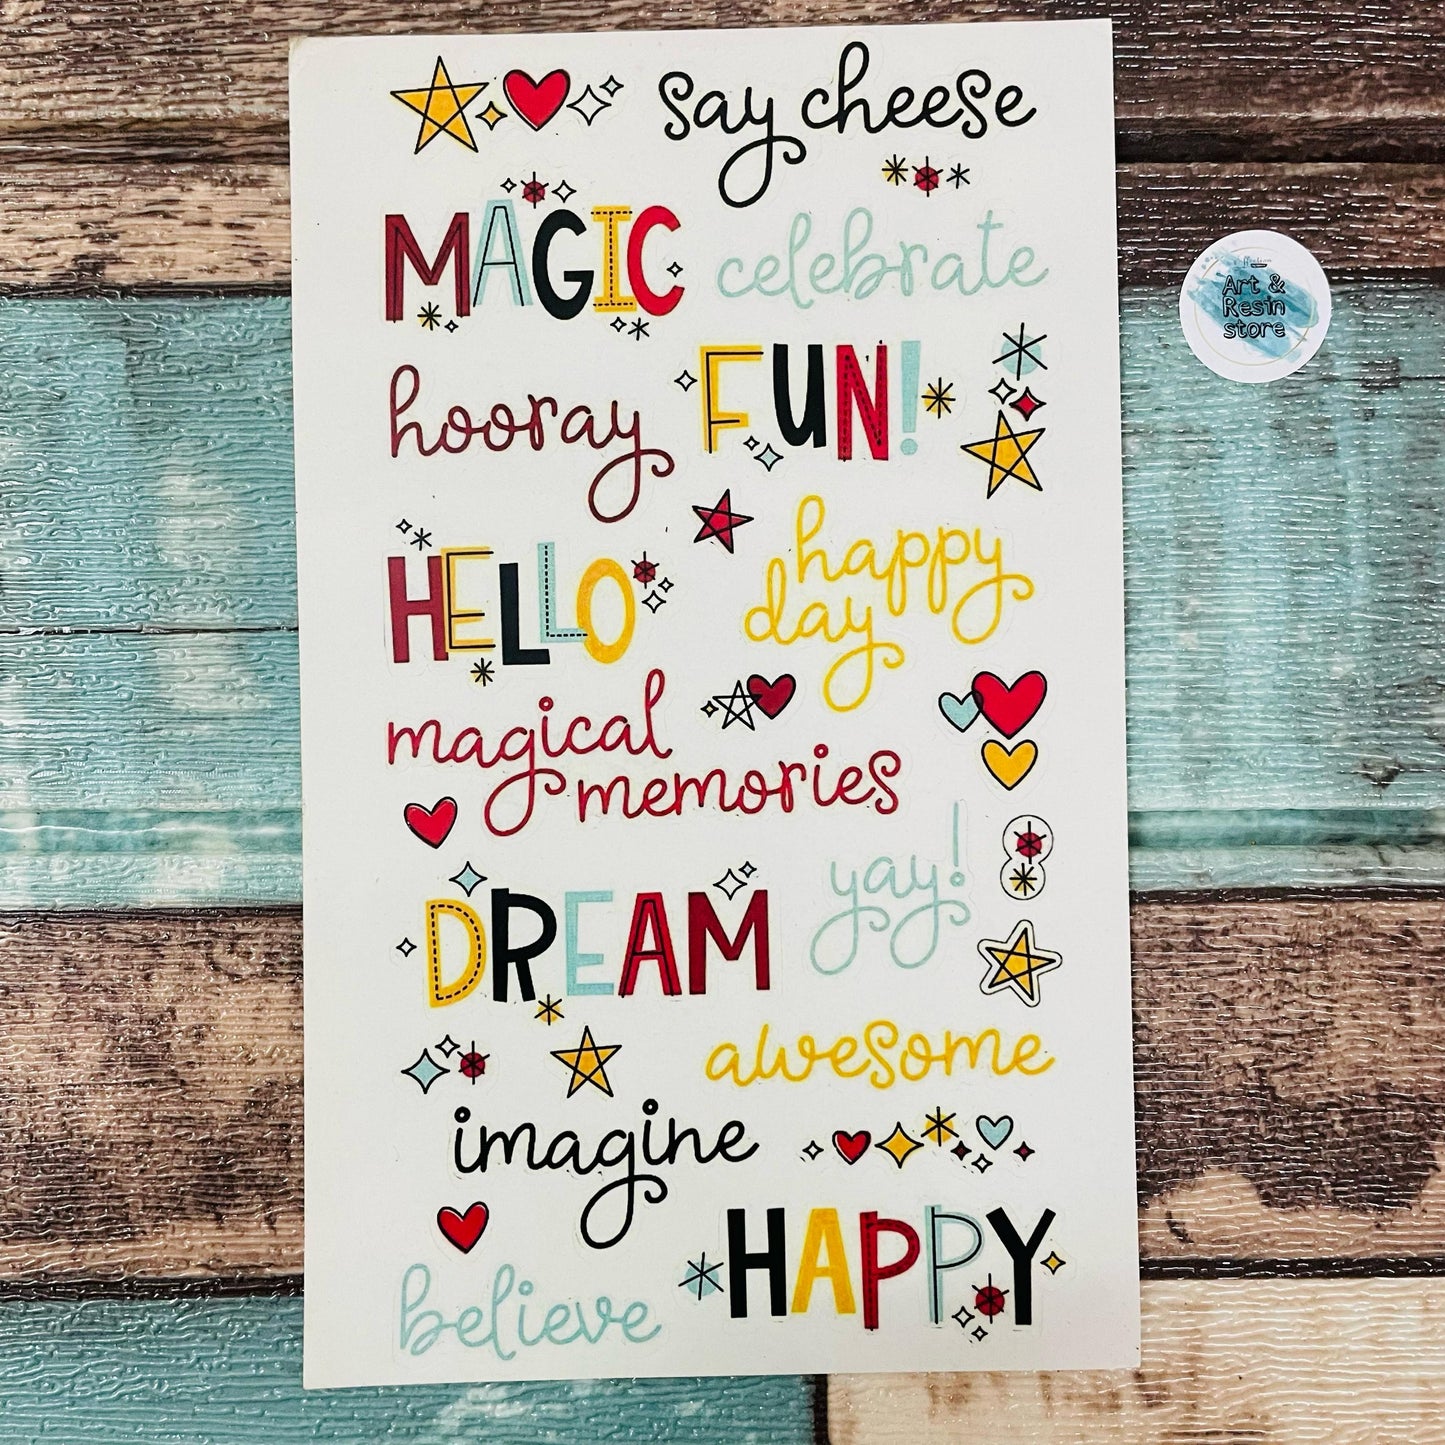 say cheese
MAGIC
celebrate
hooray
FUN!
HELLO
happy
day
magical
memories
DREAM
yay!
awesome
imagine
HAPPY
believe
Art &
Resin
store